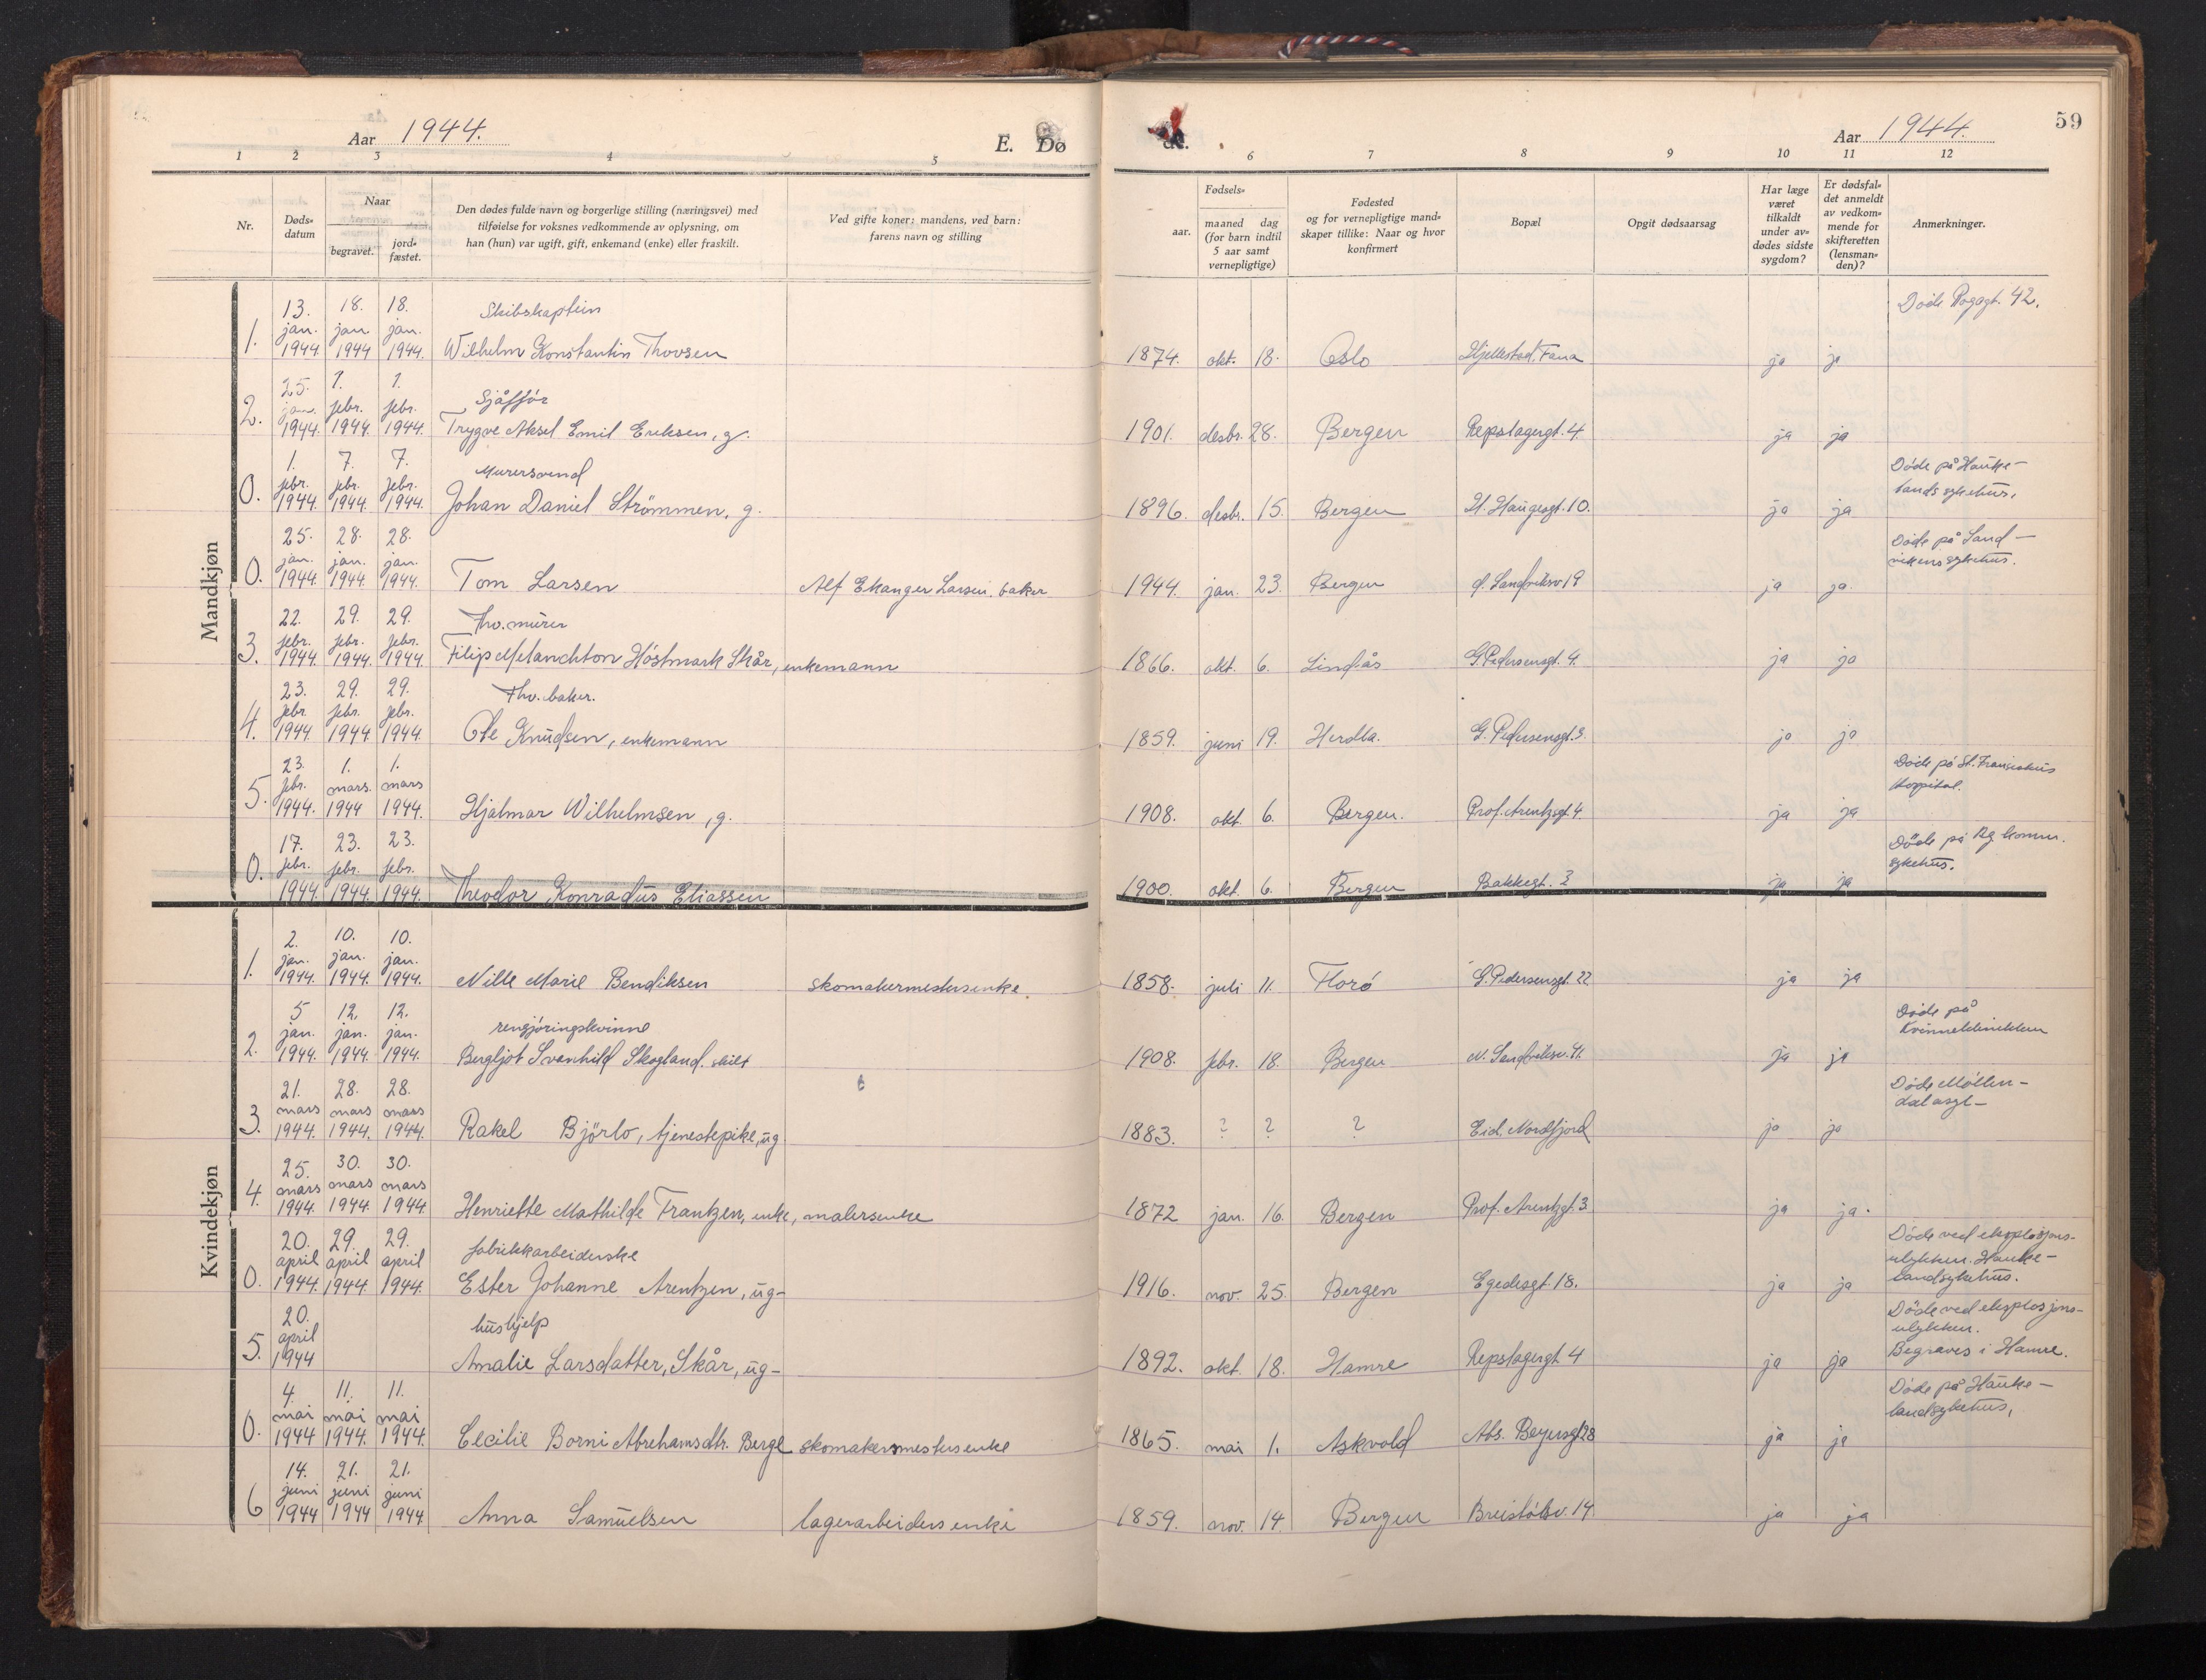 Aar 1944.
E. Dø
de.
Aar 1944.
59
1 2 3 4 5 6 7 8 9 10 11 12
Nr.
Døds-
datum
Naar
begravet.
jord-
fæstet.
Den dødes fulde navn og borgerlige stilling (næringsvei) med
tilføielse for voksnes vedkommende av oplysning, om
han (hun) var ugift, gift, enkemand (enke) eller fraskilt.
Ved gifte koner: mandens, ved barn:
farens navn og stilling
Fødsels-
aar.
maaned dag
(for barn indtil
5 aar samt
vernepligtige)
Fødested
og for vernepligtige mand-
skaper tillike: Naar og hvor
konfirmert
Bopæl
Opgit dødsaarsag
Har læge
været
tilkaldt
under av-
dødes sidste
sygdom?
Er dødsfal-
det anmeldt
av vedkom-
mende for
skifteretten
(lensman-
den)?
Anmerkninger.
Mandkjøn
13. 18. 18. Skibskaptein Døde Rogagt. 42.
jan. jan. jan.
1. 1944 1944 1944. Wilhelm Konstantin Thovsen 1874. okt. 18. Oslo Hjellestad, Fana ja ja
25. 1. 1. Sjåffør
jan. febr. febr.
2. 1944. 1944. 1944. Trygve Aksel Emil Eriksen, g. 1901. desbr. 28. Bergen Repslagergt. 4 ja ja
1. 7. 7. Murersvend Døde på Hauke-
febr. febr. febr. lands sykehus.
0. 1944. 1944. 1944. Johan Daniel Strömmen, g. 1896. desbr. 15. Bergen H. Haugesgt. 10. ja ja
25. 28. 28. Døde på Sand-
jan. jan. jan. vikens sykehus.
0. 1944. 1944 1944. Tom Larsen Alf Ekanger Larsen, baker 1944. jan. 23. Bergen Sandviksv 19 ja ja.
22. 29. 29. Fhv. murer
febr. febr. febr.
3. 1944. 1944. 1944 Filip Melanchton Höstmark Skår, enkemann 1866. okt. 6. Lindås G. Pedersensgt. 4. ja ja
23. 29. 29. Fhv. baker.
febr. febr. febr.
4. 1944 1944 1944 Ole Knudsen, enkemann 1859. juni 19. Herdla. G. Pedersensgt. 3. ja ja
23. 1. 1. Døde på St. Franciskus
febr. mars. mars Hospital.
5. 1944. 1944 1944. Hjalmar Wilhelmsen, g. 1908. okt. 6. Bergen. Prof. Arentzgt. 4. ja ja
17. 23. 23. Døde på Bg. komm.
febr. febr. febr. sykehus.
0. 1944. 1944. 1944. Theodor Konradus Eliassen 1900. okt. 6. Bergen Bakkegt. 3 ja ja
Kvindekjøn
2. 10. 10.
jan. jan. jan.
1. 1944. 1944. 1944. Nille Marie Bendiksen skomakermestersenke. 1858. juli 11. Florö G. Pedersensgt. 22 ja ja
5 12. 12. rengjøringskvinne Døde på
jan. jan. jan. Kvinneklinikken
2. 1944. 1944. 1944. Bergljot Svanhild Skogland. skilt 1908. febr. 18. Bergen N. Sandviksv. 41. ja ja
21. 28. 28. Døde Möllen-
mars mars mars dal asyl-
3. 1944. 1944. 1944. Rakel Björlo, tjenestepike, ug 1883. ? ? ? Eid, Nordfjord ja ja
25. 30. 30.
mars mars mars
4. 1944. 1944. 1944 Henriette Mathilde Frantzen, enke, malersenke 1872 jan. 16. Bergen Prof. Arentzgt. 3 ja ja.
20. 29. 29. fabrikkarbeiderske Døde ved eksplosjons-
april april april ulykken. Hauke-
0. 1944. 1944. 1944. Ester Johanne Arentzen, ug- 1916. nov. 25. Bergen Egedesgt. 18. ja ja landsykehus.
20. hushjelp Døde ved eksplosjons-
april ulykken.
5. 1944 Amalie Larsdatter, Skår, ug- 1892. okt. 18. Hamre Repslagergt 4 ja ja Begraves i Hamre.
4. 11. 11. Døde på Hauke-
mai mai mai landsykehus,
0. 1944 1944. 1944. Cecilie Borni Abrehamsdtr. Berge skomakermestersenke 1865. mai 1. Askvold Abs. Beyersgt 28 ja ja
14. 21. 21.
juni juni juni
6 1944 1944 1944 Anna Samuelsen lagerarbeidersenke 1859. nov. 14. Bergen Breistölsv. 14. ja ja